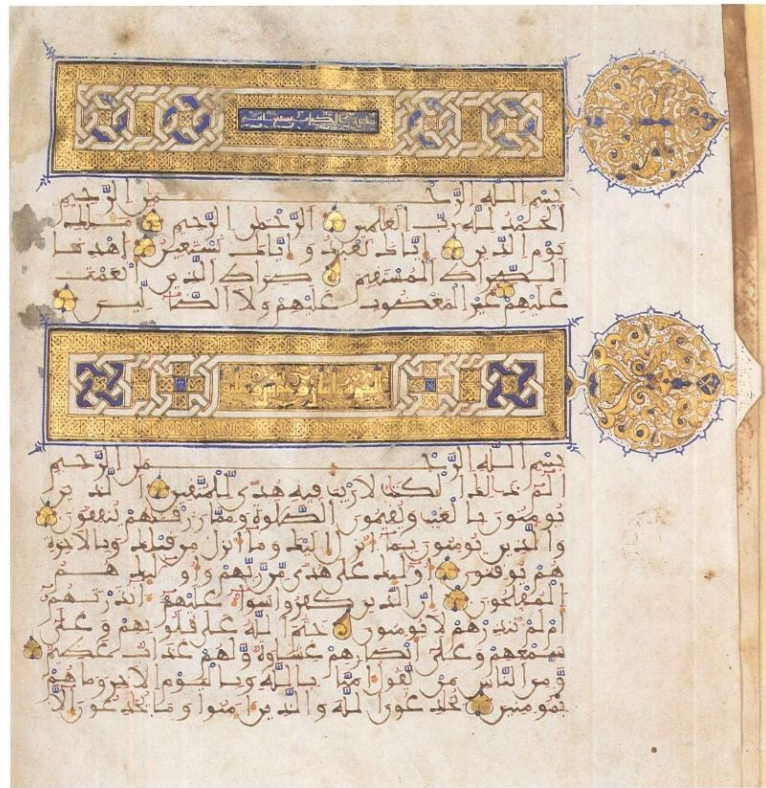 بسم الله الرحمن الرحيم
الحمد لله رب العلمين الرحمن الرحيم ملك
يوم الدين إياك نعبد وإياك نستعين اهدنا
الصراط المستقيم صراط الذين أنعمت
عليهم غير المغضوب عليهم ولا الضالين
بسم الله الرحمن الرحيم
الم ذلك الكتب لا ريب فيه هدى للمتقين الذين
يومنون بالغيب ويقيمون الصلوة ومما رزقنهم ينفقون
والذين يومنون بما أنزل إليك وما أنزل من قبلك وبالاخرة
هم يوقنون أولئك على هدى من ربهم وأولئك هم
المفلحون إن الذين كفروا سواء عليهم ءانذرتهم
أم لم تنذرهم لا يومنون ختم الله على قلوبهم وعلى
سمعهم وعلى أبصرهم غشوة ولهم عذاب عظيم
ومن الناس من يقول ءامنا بالله وباليوم الاخر وما هم
بمومنين يخدعون الله والذين ءامنوا وما يخدعون إلا